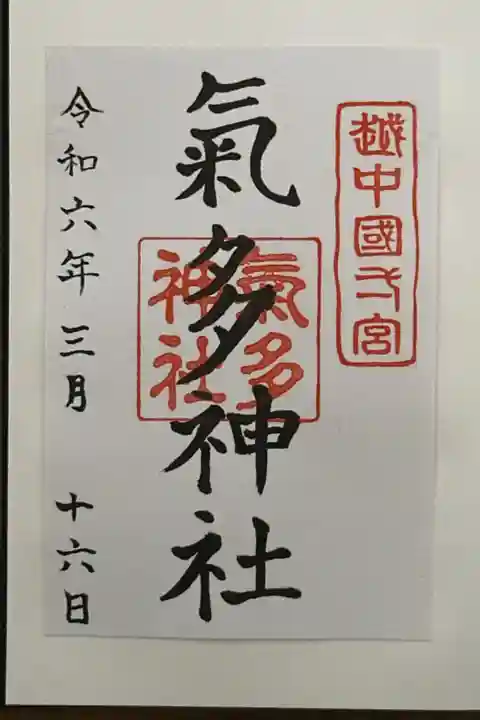 越中國弌宮
氣多神社
氣多
神社
令和六年三月十六日